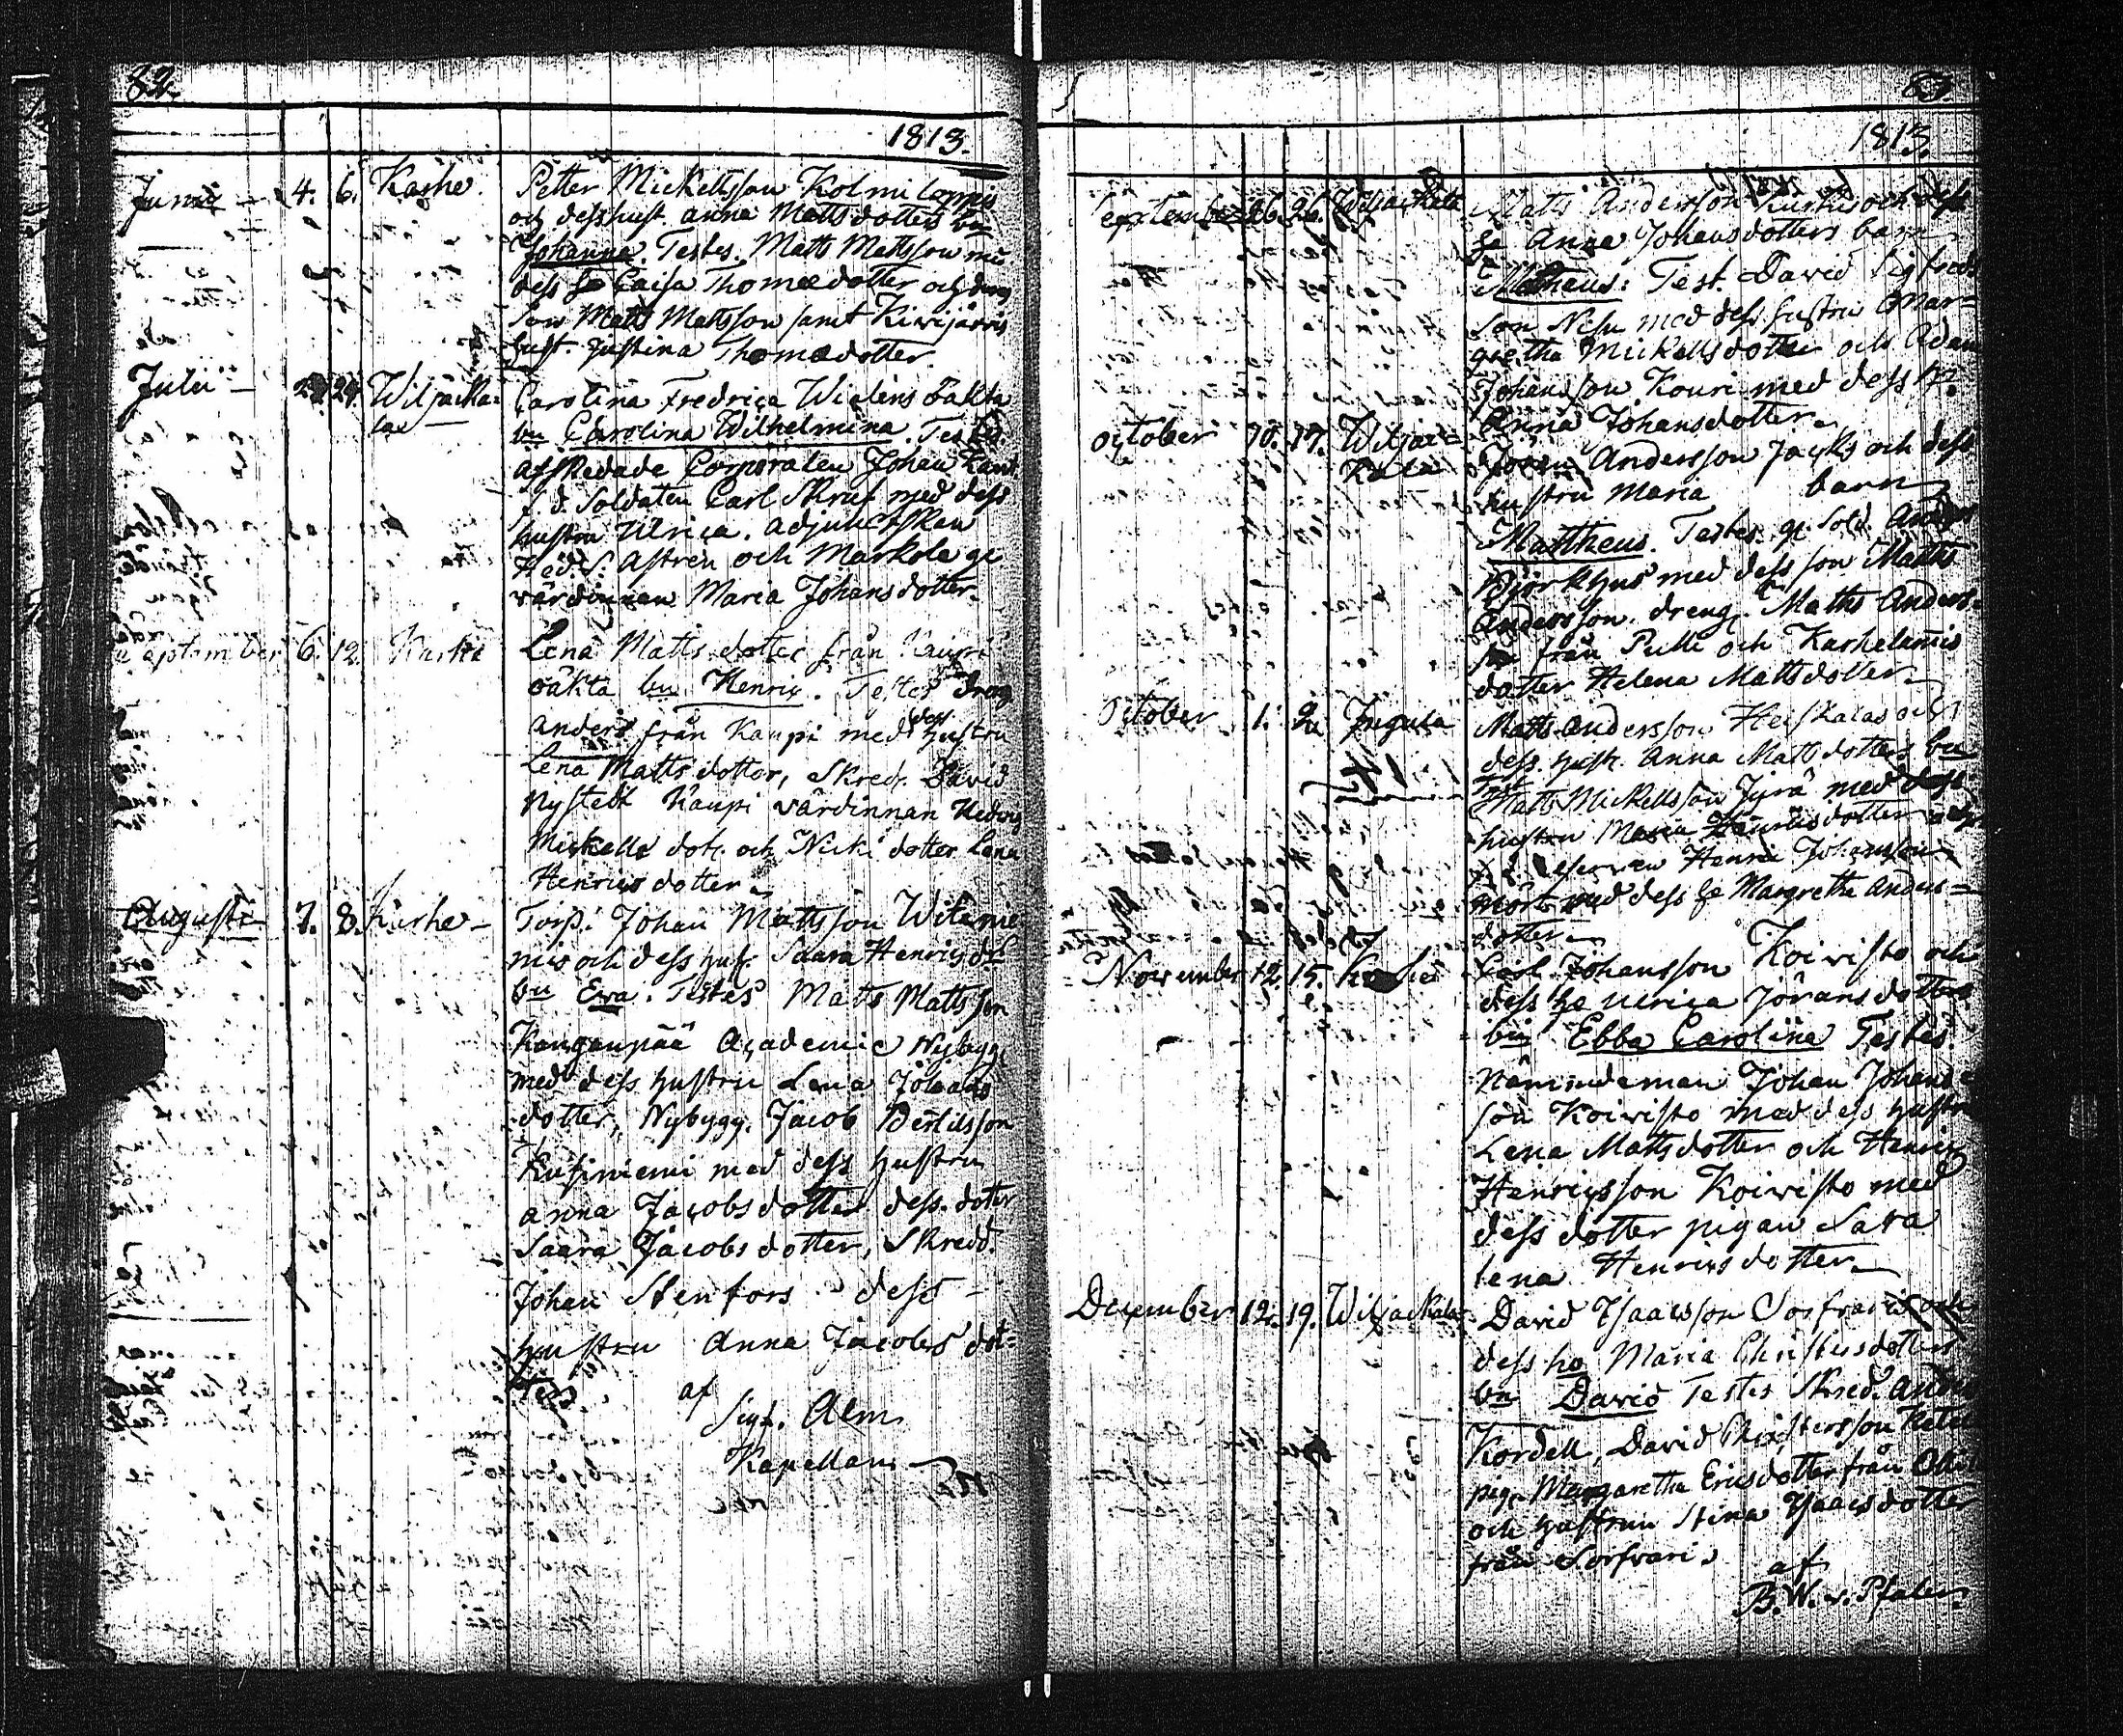 82.
1813.
Junii 4. 6. Karhe. Petter Mickellsson Kolmi lammis
och dess hust. Anna Mattsdotters bn
Johanna. Testes. Matts Mattsson m
dess h Caisa Thomædotter och
son Matts Mattsson samt Kivijärvis
hust. Justina Thomædotter
Julii 24. Wiljacka-
la Carolina Fredrica Widens oäkta
bn Carolina Wilhelmina. Testes
afskedade Corporalen Johan
f. d. Soldaten Carl Skruf med dess
hustru Ulrica. adjunctskan
Hed. S. Astren och Markola
värdinnan Maria Johansdotter
September 6. 12. Karhe Lena Mattsdotter från Kaupi
oäkta bn Henric. Testes Dreng
Anders från Kaupi med dess hustru
Lena Mattsdotter, Skredd. David
Nystedt Kaupi värdinnan Hedvig
Mickells dot. och Nicki dotter Lena
Henricsdotter
Augusti 7. 8. Karhe Torp. Johan Mattsson Witanie
mis och dess hust. Saara Henricsd:
bn Ewa. Testes Matts Mattsson
Kanganpää Academie Nybygg.
med dess hustru Lena Johans
dotter, Nybygg. Jacob Bertilsson
Kuusiniemi med dess hustru
Anna Jacobsdotter dess dotter
Saara Jacobsdotter, Skredd.
Johan Stenfors dess
hustru Anna Jacobs dot-
ter. af
Sigf. Alm
Kapellan
83.
1813.
September 26. 26. Wiljackala Matts Andersson och dess
h Anna Johansdotters barn
Matheus: Test. David Sigfreds
son Nesu med dess hustru Mar-
gretha Mickellsdotter och Adam
Johansson Kouri med dess h.
Anna Johansdotter.
October 10. 17. Wiljac-
kala Andersson Jacks och dess
hustru Maria barn
Mattheus. Testes. Sold. Anders
Björkhus med dess son Matts
Andersson. dreng. Matts Anders-
son från Pulli och Karhelamis
dotter Helena Mattsdotter
October 1. 2. Ingula Matts Andersson Heiskalas och
dess hust. Anna Mattsdotters bn
Test Matts Mickellsson Jyrä med dess
hustru Maria Henricsdotter
Henric Johansson
med dess h Margretha Anders-
dotter
November 12. 15. Karhe Carl Johansson Koivisto och
dess h Ulrica Jöransdotters
bn Ebba Carolina Testes
Nämndeman Johan Johans
son Koivisto med dess hustru
Lena Mattsdotter och Henric
Henricsson Koivisto med
dess dotter pigan Sara
Lena Henricsdotter
December 12. 19. Wiljackala David Isaacsson Sorfvaris och
dess ho Maria Christersdotters
bn David Testes Skred. Anders
Kordell, David Christersson
pig. Margaretha Ericsdotter från
och hustrun Stina Isaacsdotter
från Sorfvari
af
B. W. v. Pfaler.